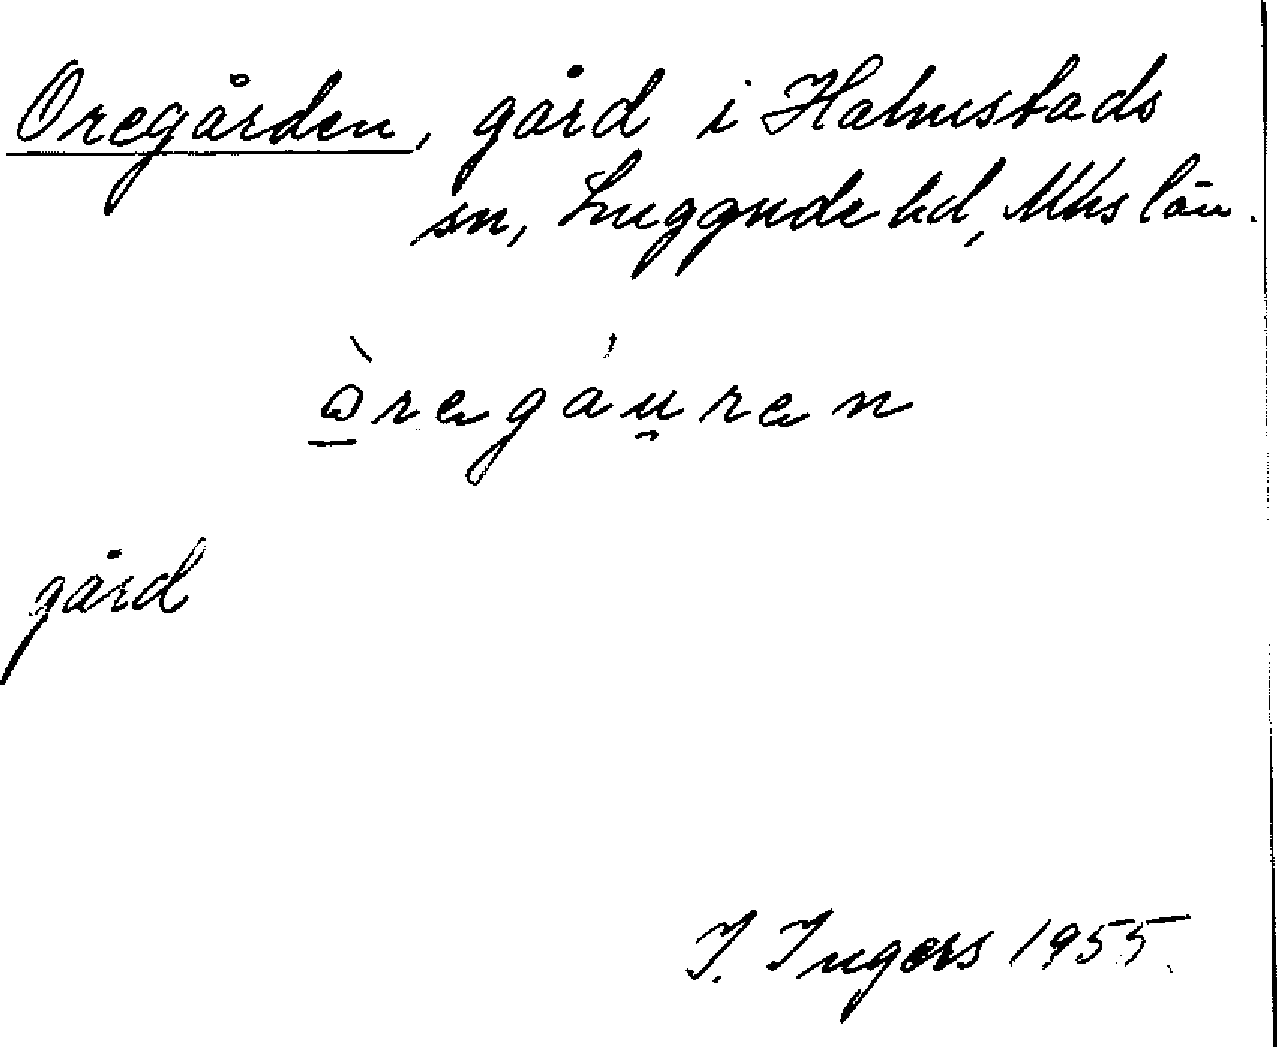 Oregården, gård i Halmstads
sn, Luggude hd, Mhs län.
òregáu̯ren
gård
I. Ingers 1955.